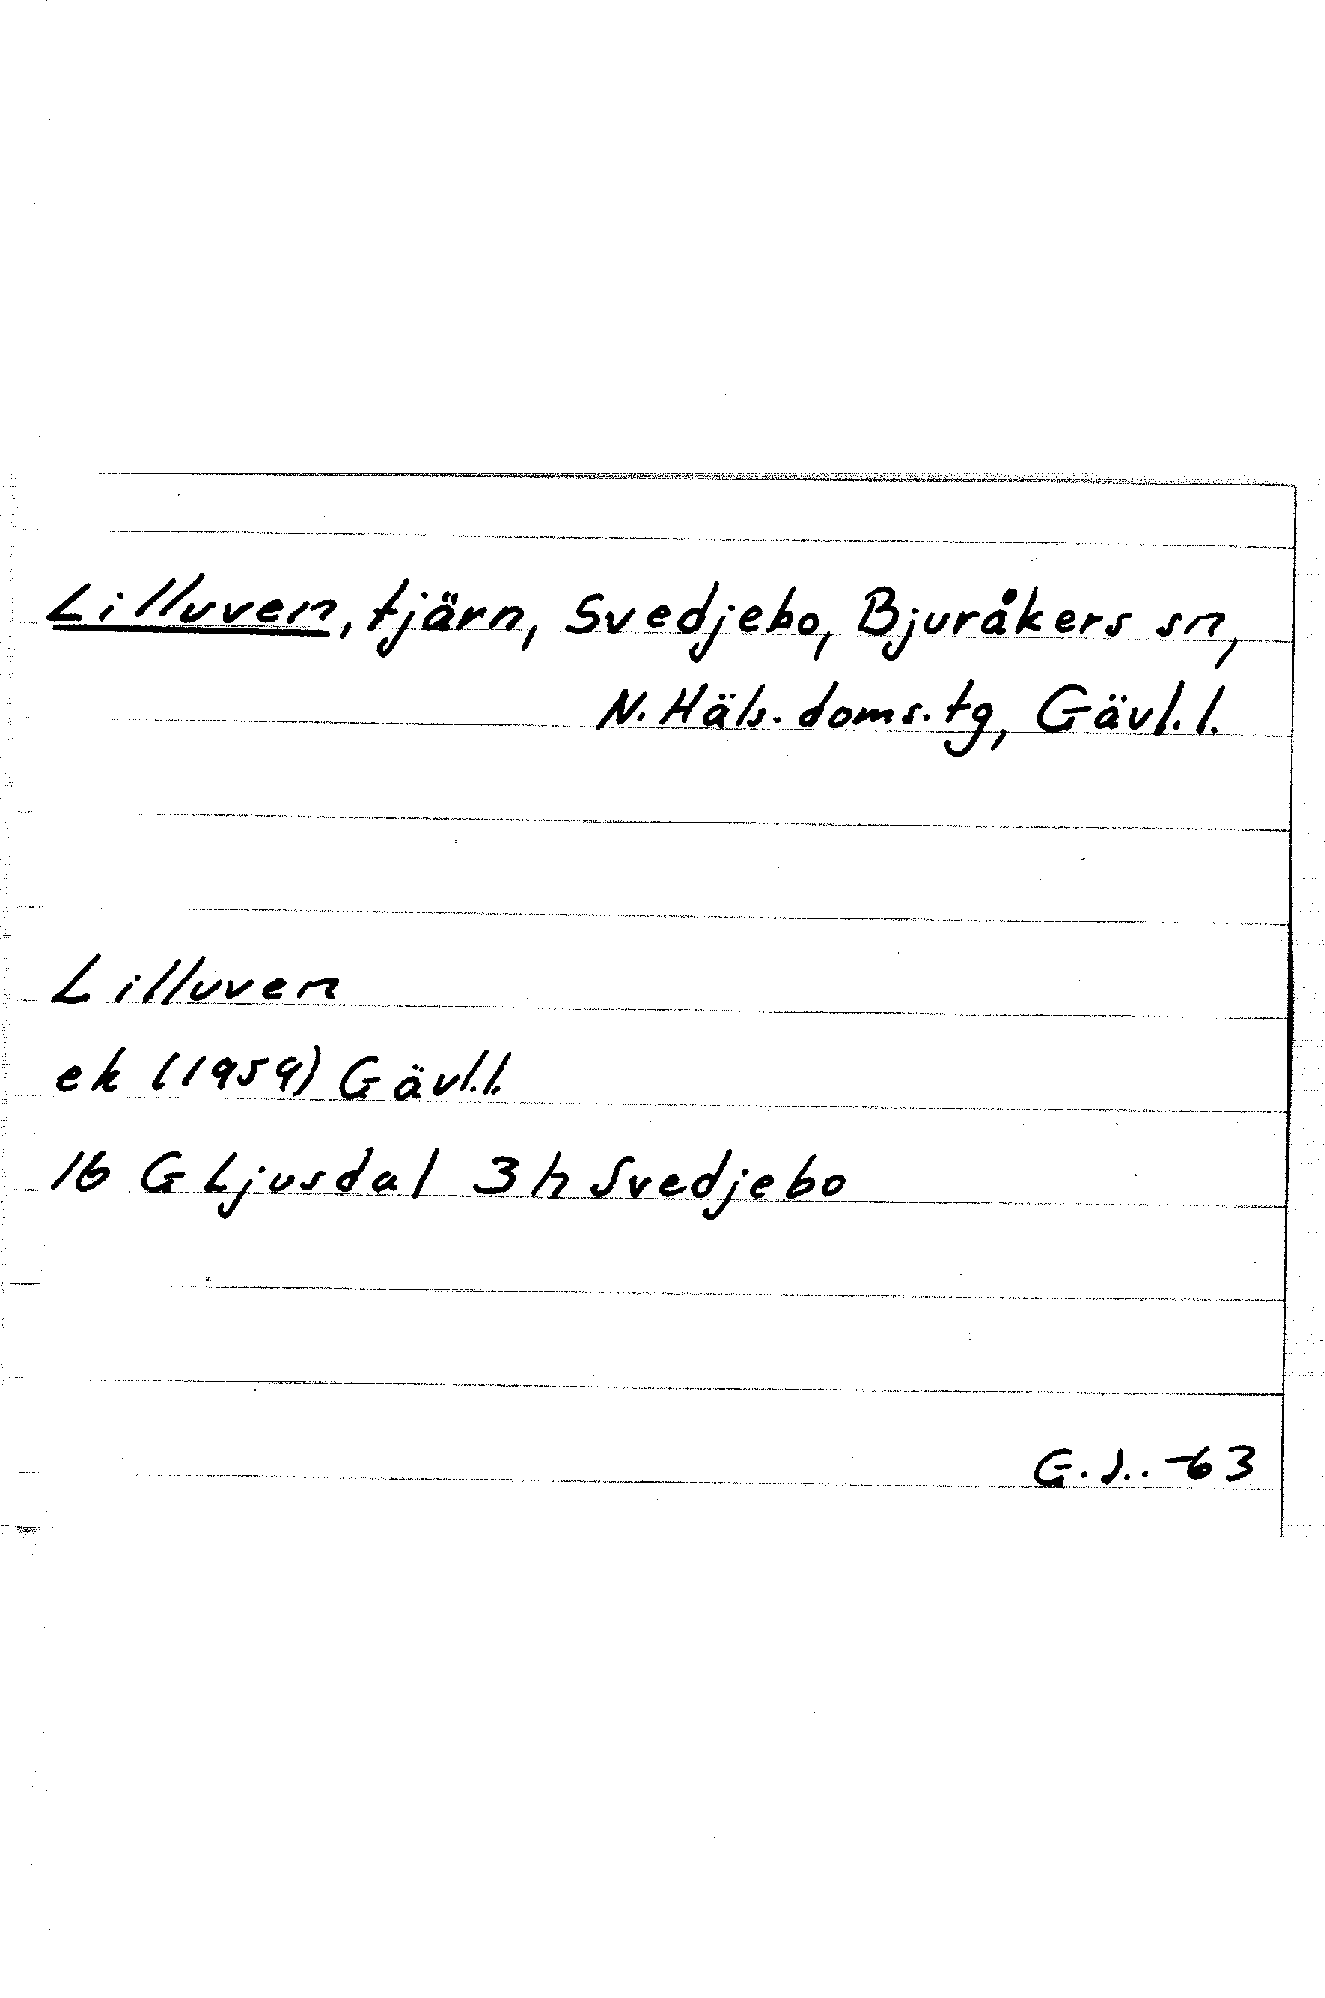 Lilluven, tjärn, Svedjebo, Bjuråkers sn,
N. Häls. doms. tg, Gävl. l.
Lilluven
ek (1959) Gävl.l.
16 G Ljusdal 3 h Svedjebo
G. J.. -63